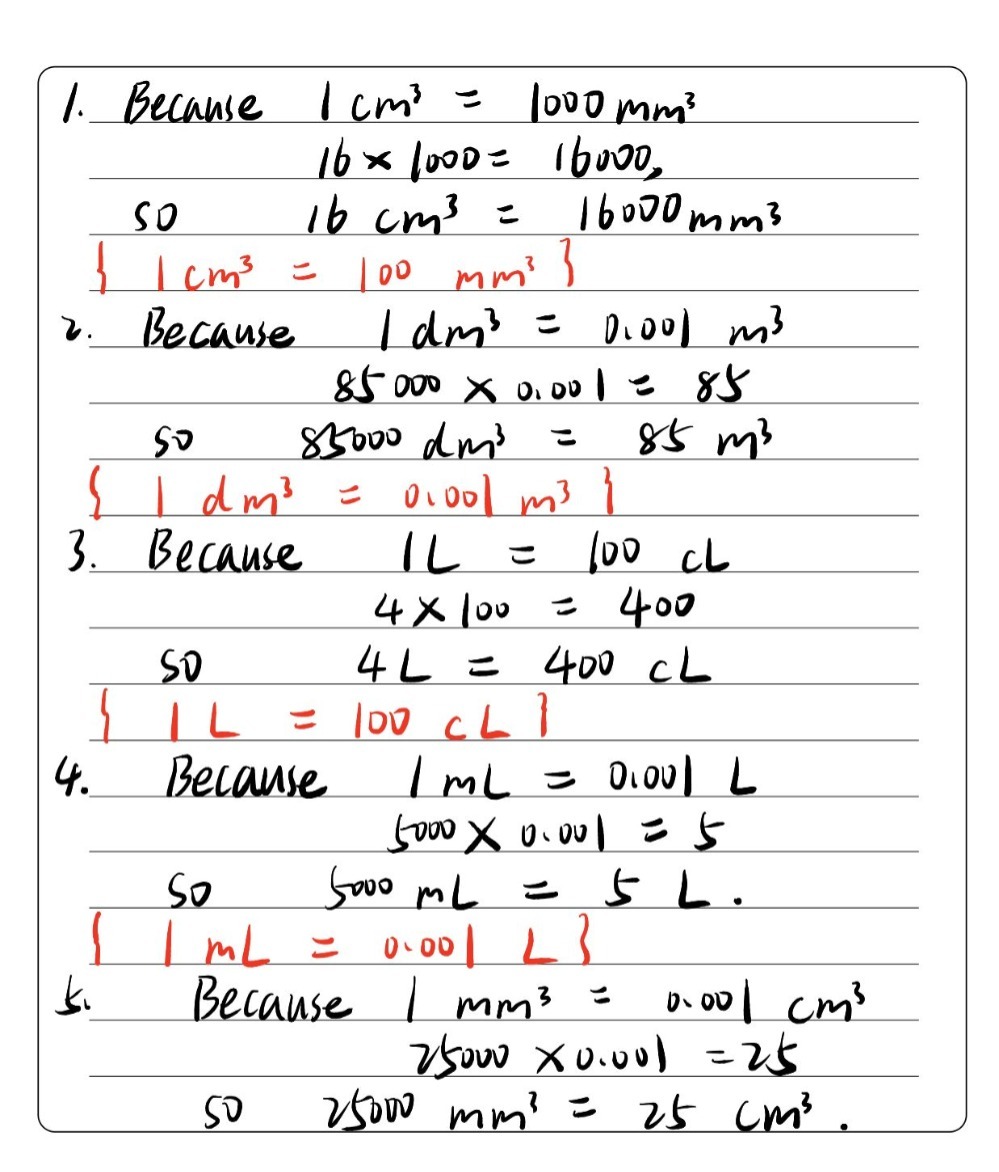 1. Because 1 cm³ = 1000 mm³
16 × 1000 = 16000,
so 16 cm³ = 16000 mm³
{ 1 cm³ = 100 mm³ }
2. Because 1 dm³ = 0.001 m³
85000 × 0.001 = 85
so 85000 dm³ = 85 m³
{ 1 dm³ = 0.001 m³ }
3. Because 1 L = 100 cL
4 × 100 = 400
so 4 L = 400 cL
{ 1 L = 100 cL }
4. Because 1 mL = 0.001 L
5000 × 0.001 = 5
so 5000 mL = 5 L.
{ 1 mL = 0.001 L }
5. Because 1 mm³ = 0.001 cm³
25000 × 0.001 = 25
so 25000 mm³ = 25 cm³.